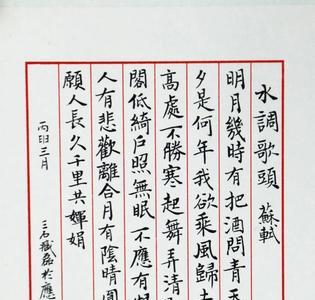 水調歌頭 蘇軾
明月幾時有把酒問青天
夕是何年我欲乘風歸去
高處不勝寒起舞弄清
閣低綺戶照無眠不應有
人有悲歡離合月有陰晴圓
願人長久千里共嬋娟
丙 三月